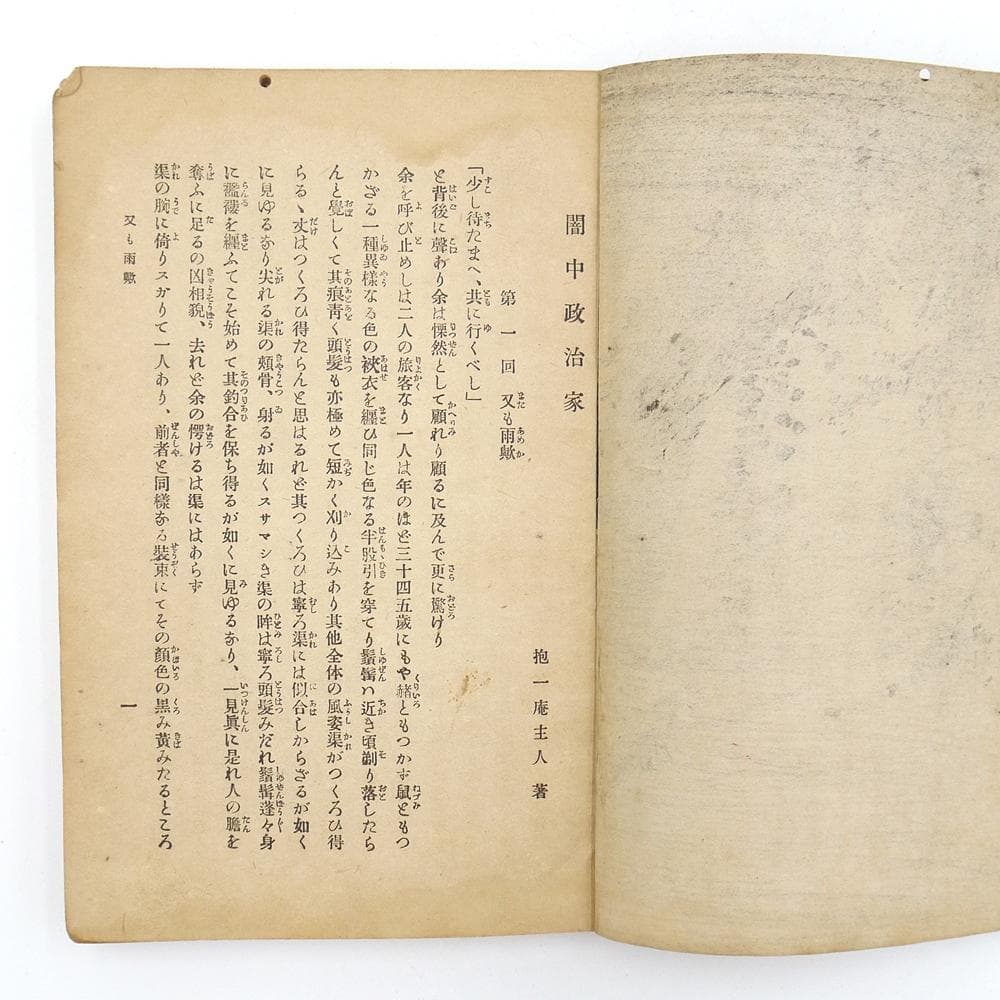 闇中政治家
抱一庵主人 著
第一回 又も雨歟
「少し待たまへ、共に行くべし」
と背後に聲あり余は慄然として顧れり顧るに及んで更に驚けり
余を呼び止めしは二人の旅客なり一人は年のほど三十四五歳にもや赭ともつかず鼠ともつ
かざる一種異様なる色の袷衣を纏ひ同じ色なる半股引を穿てり鬚髯ハ近き頃剃り落したら
んと覺しくて其痕青く頭髮も亦極めて短かく刈り込みあり其他全体の風姿渠がつくろひ得
らるゝ丈はつくろひ得たらんと思はるれど其つくろひは寧ろ渠には似合しからざるが如く
に見ゆるなり尖れる渠の頬骨、射るが如くスサマシき渠の眸は寧ろ頭髮みだれ鬚髯蓬々身
に襤褸を纏ふてこそ始めて其釣合を保ち得るが如くに見ゆるなり、一見眞に是れ人の膽を
奪ふに足るの凶相貌、去れど余の愕けるは渠にはあらず
渠の腕に倚りスガりて一人あり、前者と同樣なる裝束にてその顏色の黒み黄みたるところ
又も雨歟
一